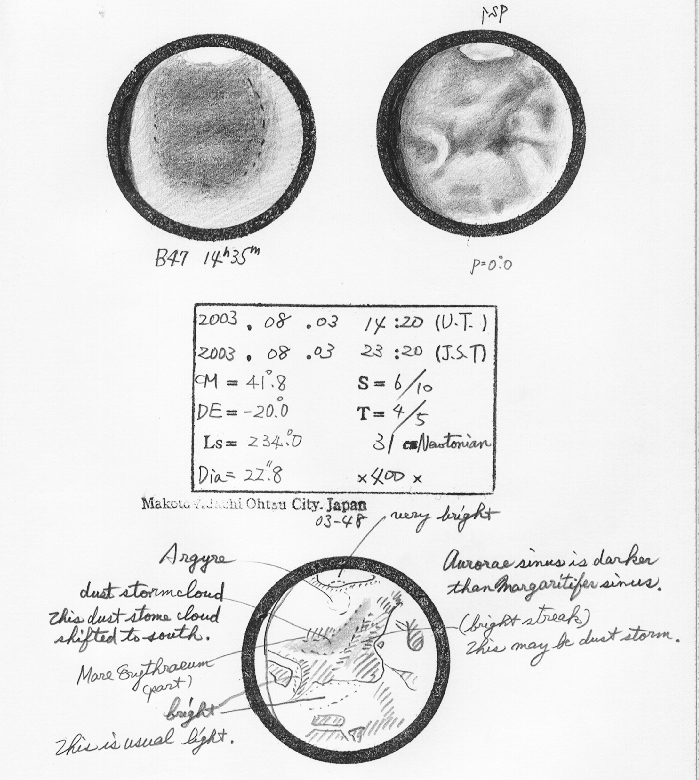 PSP
B47 14h35m
P=0°.0
2003 . 08 . 03 14:20 (U.T.)
2003 . 08 . 03 23:20 (J.S.T)
CM = 41°.8 S = 6/10
DE = -20°.0 T = 4/5
Ls = 234°.0 31 cm Newtonian
Dia = 22".8 ×400 ×
Makoto Ohtsu City. Japan
03-48
very bright
Argyre
dust storm cloud
This dust stome cloud
shifted to south.
Mare Erythraeum
(part)
bright
This is usual light.
Aurorae sinus is darker
than Margaritifer sinus.
(bright streak)
This may be dust storm.